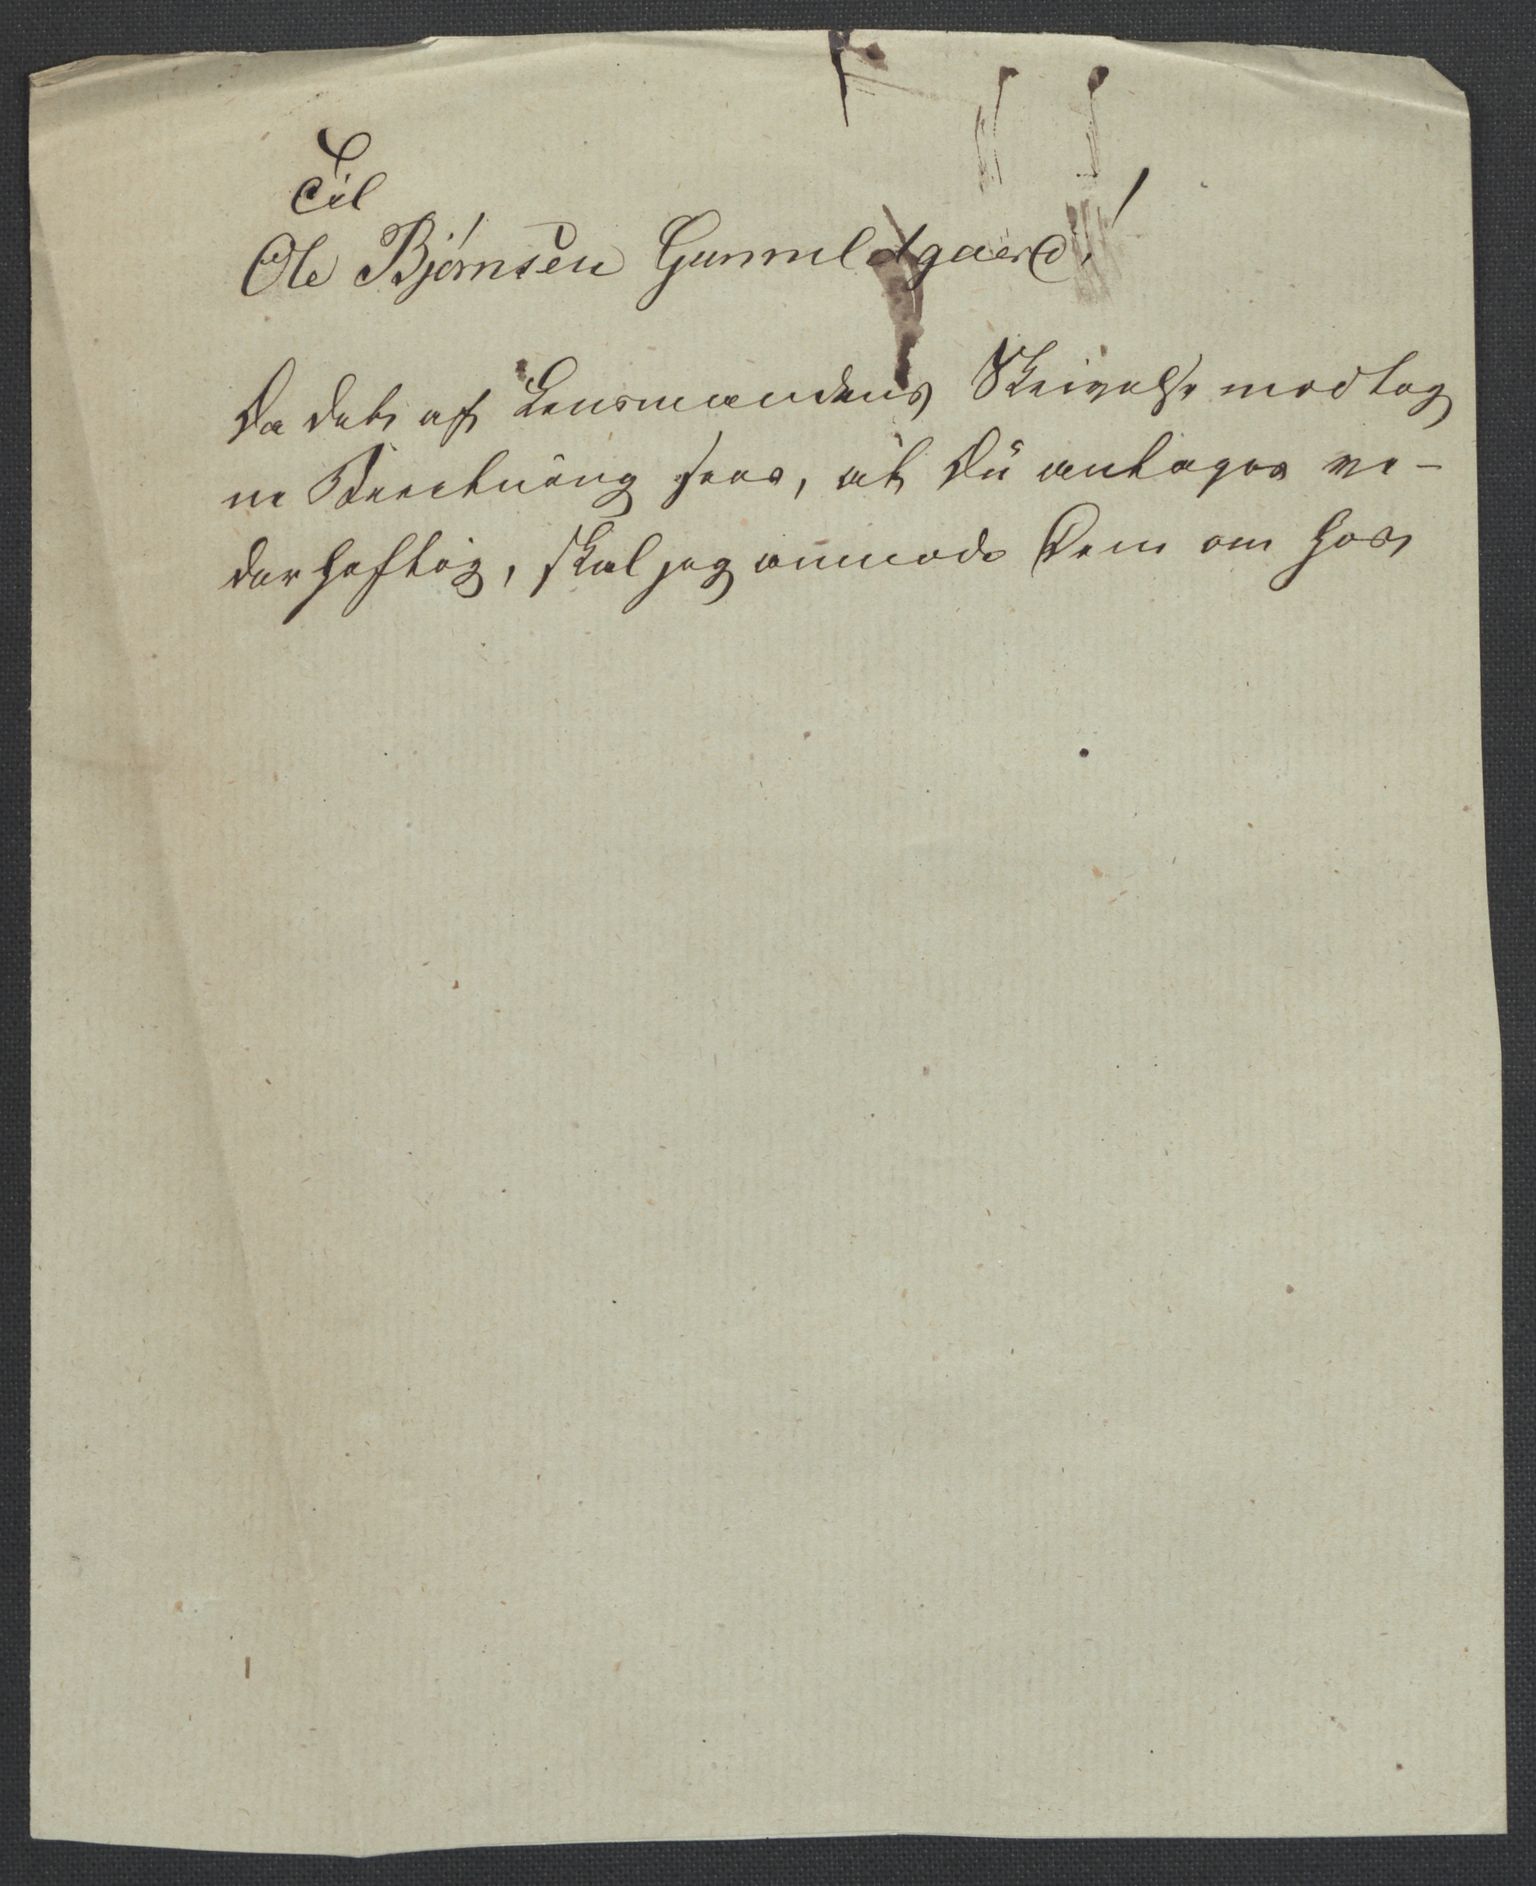 Til
Ole Bjørnsen Gunnildgaard!
Da det af Lensmandens Skrivelse modtag
ne Beretning sees, at Du antages ve-
derhæftig, skal jeg anmode Dem om hos